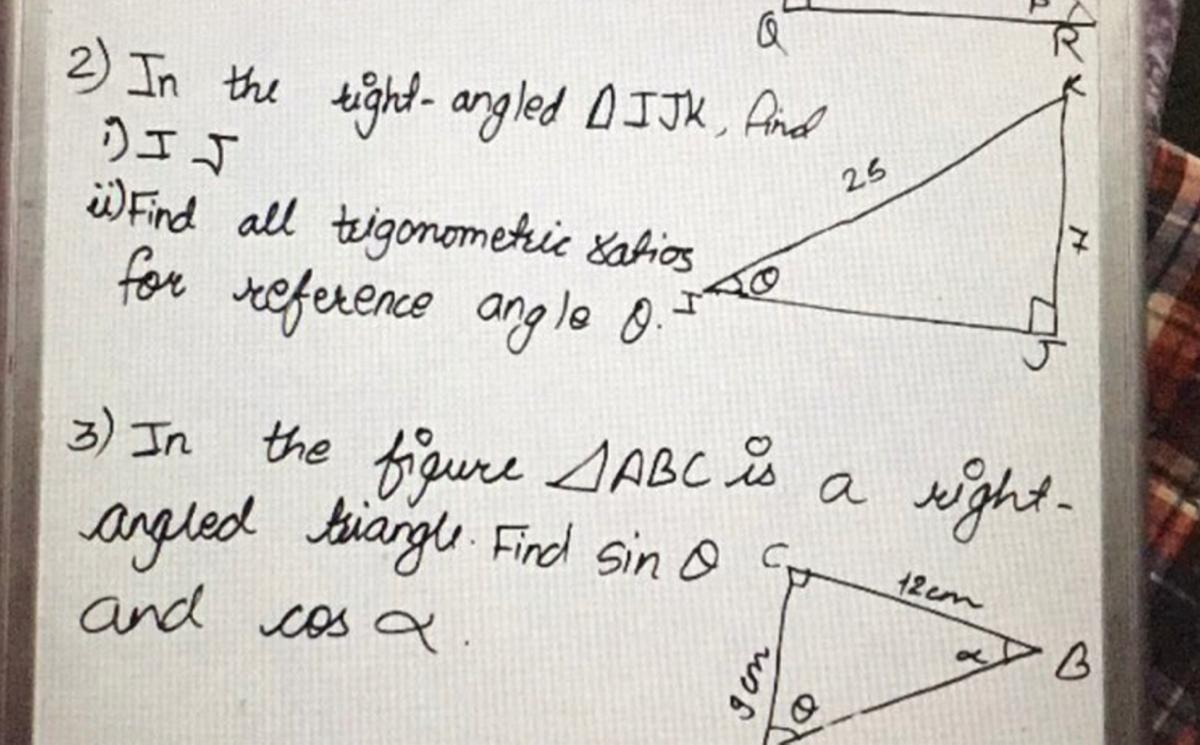 Q
R
2) In the right-angled ΔIJK, find
K
i) I J
25
ii) Find all trigonometric ratios
7
θ
for reference angle θ.
I
J
3) In the figure ΔABC is a right-
angled triangle. Find sin θ
C
12cm
and cos α.
α
B
9cm
θ